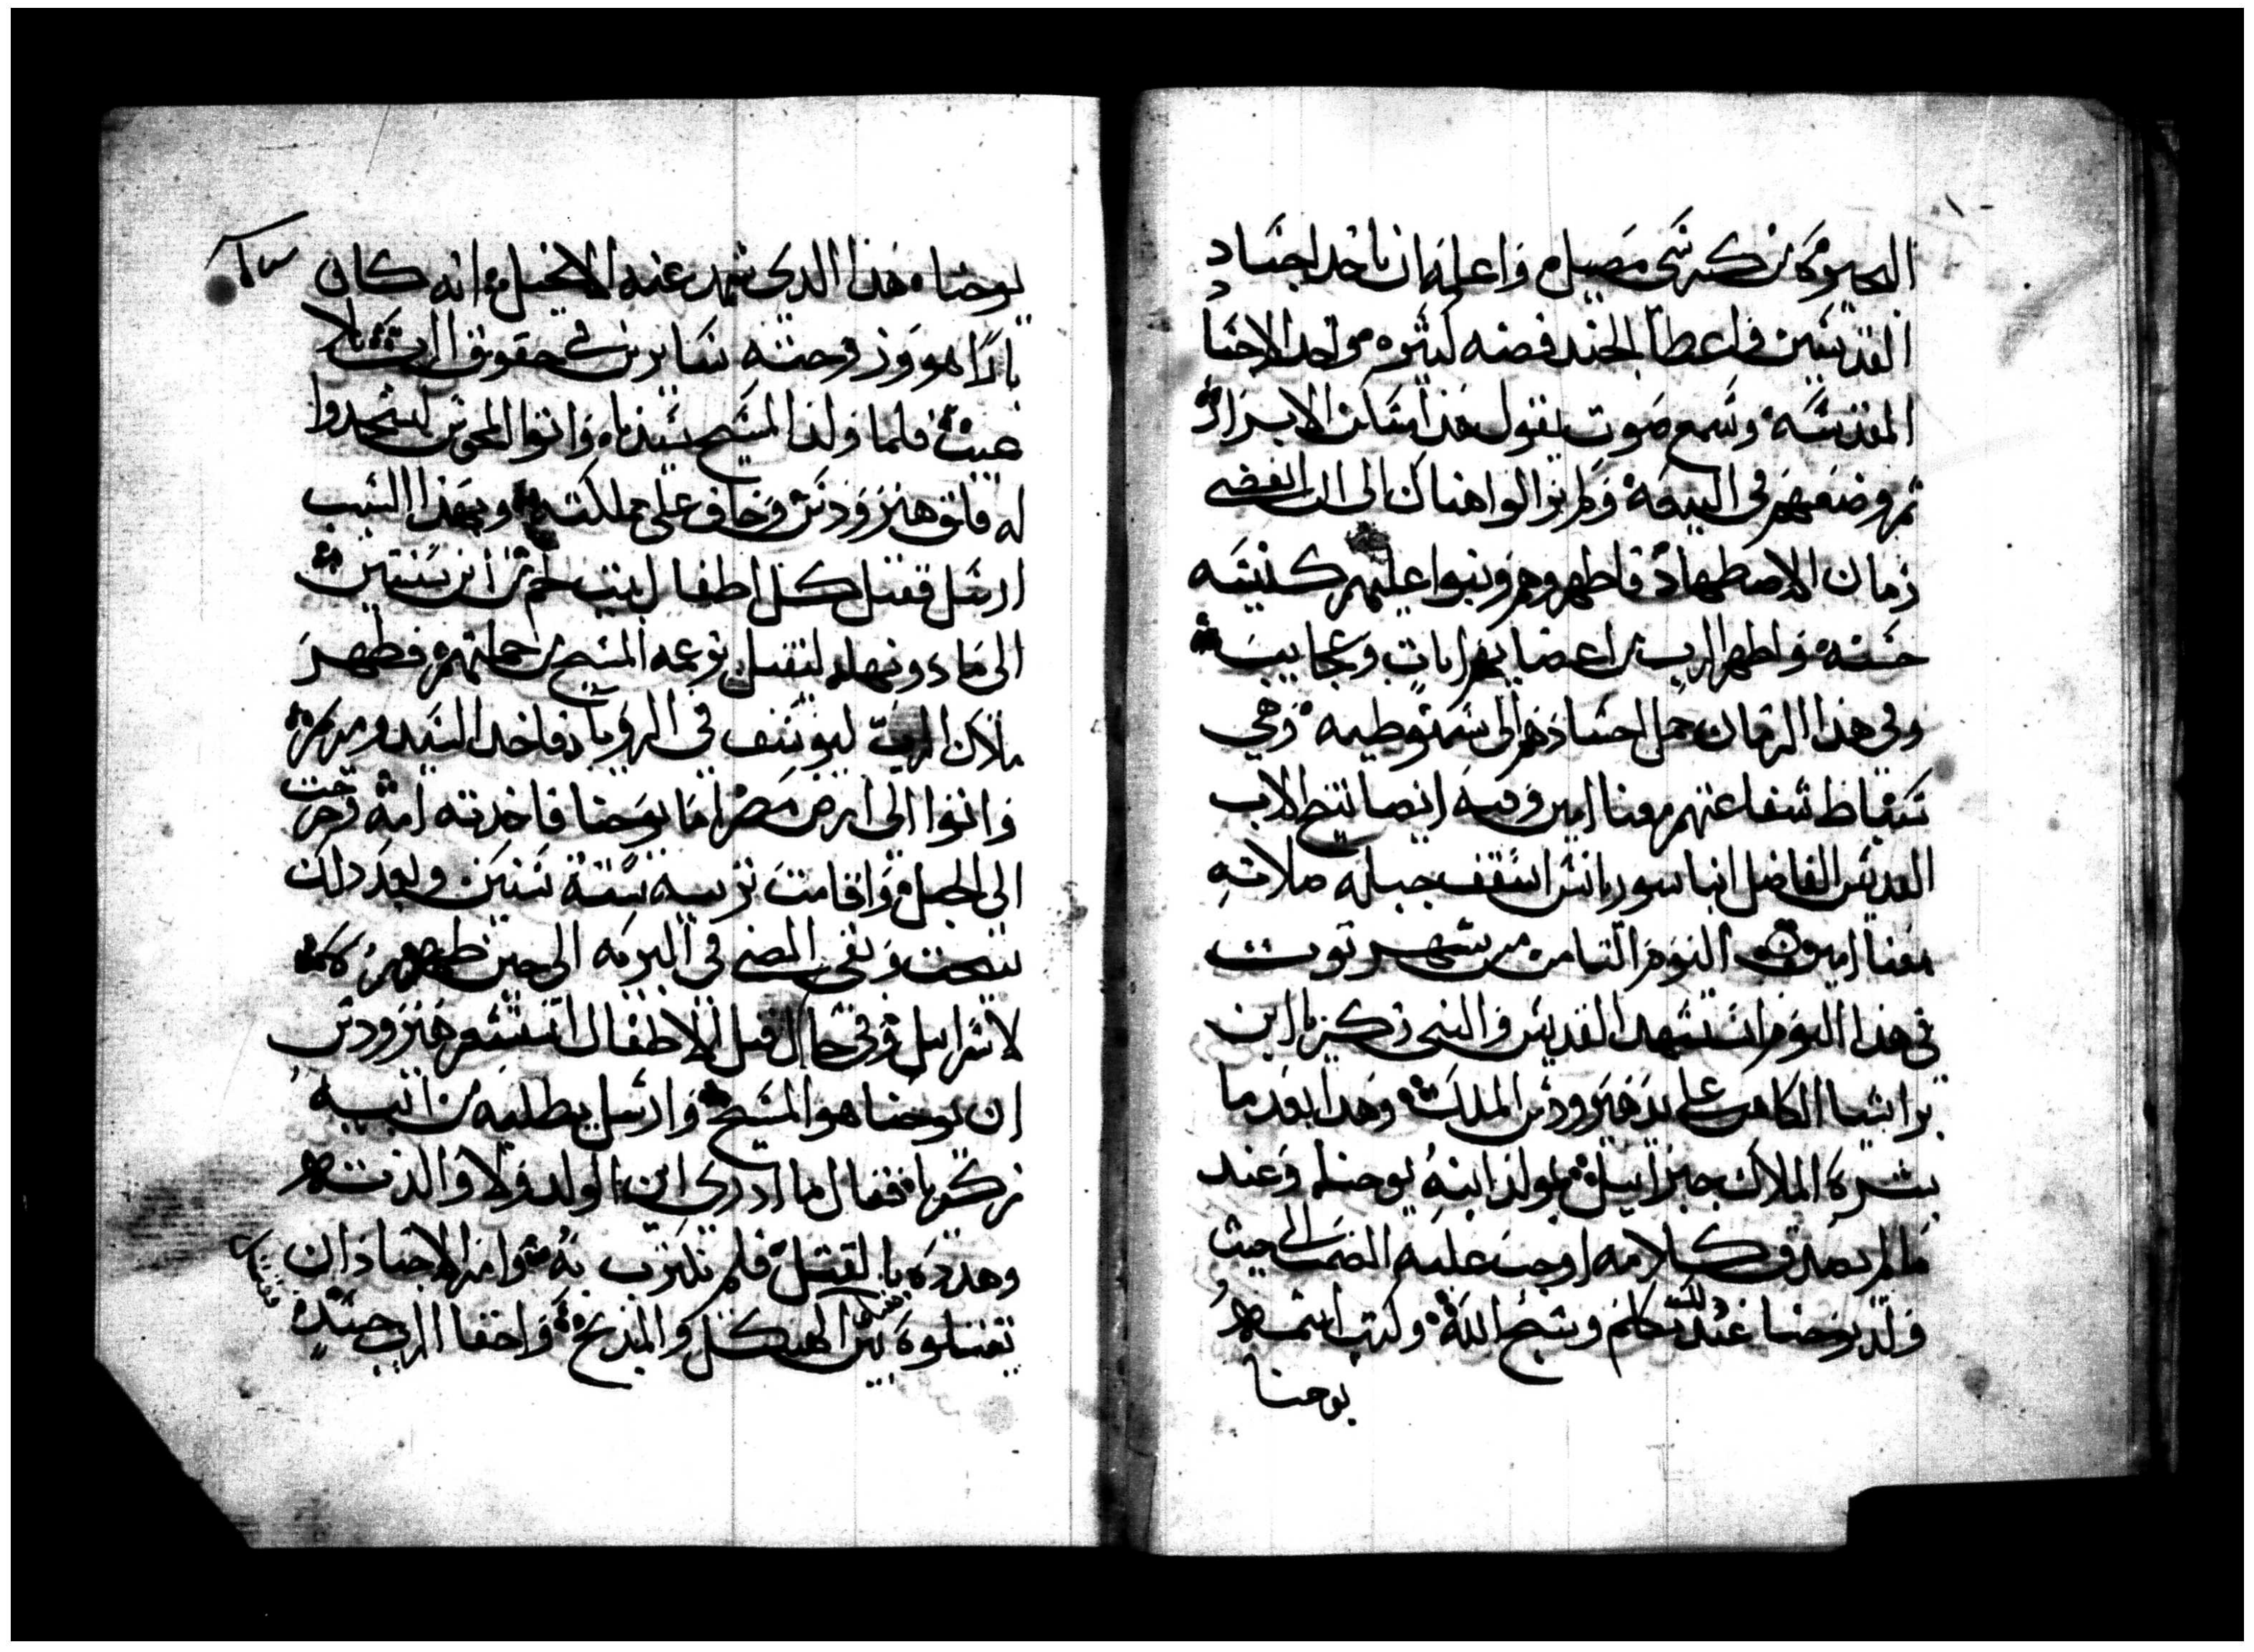 القديسين واعطا الجند فضه كثيره واخد الاجساد
المقدسه وسمع صوت يقول هذا مسكن الابرار
ثم وضعهم في البيعه ولم يزالوا هناك الى ان انقضى
زمان الاضطهاد فاظهروهم وبنوا عليهم كنيسه
حسنه واظهر الرب من اعضايهم ايات وعجايب
وفي هذا الزمان حمل اجسادهم الى وهي
شفاعتهم معنا امين وفيه ايضا تنيح الاب
القديس الفاضل انبا سوريانس اسقف جبله صلاته
معنا امين اليوم التامن من شهر توت
في هذا اليوم استشهد القديس والنبي زكريا ابن
براشيا الكاهن على يد هيرودس الملك وهذا بعد ما
بشره الملاك جبراييل بمولد ابنه يوحنا وعند
ما لم يصدق كلامه اوجب عليه الصمت الى حيث
ولد يوحنا عند ذلك تكلم وسبح الله وكتب اسمه
يوحنا
يوحنا هذا الدي شهد عنه الانجيل انه كان
بارا هو وزوجته سايرين في حقوق الرب بلا
عيب فلما ولد المسيح سيدنا واتوا المجوس ليسجدوا
له قلق هيرودس وخاف على مملكته وبهذا السبب
ارسل فقتل كل اطفال بيت لحم من ابن سنتين
الى ما دونها ليقتل بزعمه المسيح من جملتهم فظهر
ملاك الرب ليوسف في الرويا فاخد السيد ومريم
واتوا الى ارض مصر اما يوحنا فاخدته امه وخرجت
الى الجبل واقامت تربيه ستة سنين وبعد دلك
تنيحت وبقى الصبي في البريه الى حين ظهوره
لاسراييل وفي حال قتل الاطفال هيرودس
ان يوحنا هو المسيح وارسل يطلبه من ابيه
زكريا فقال ما ادري اين الولد ولا والدته
وهدده بالقتل فلم يكترت به وامر الاجناد ان
يقتلوه بين الهيكل والمذبح واخفا الرب جسده